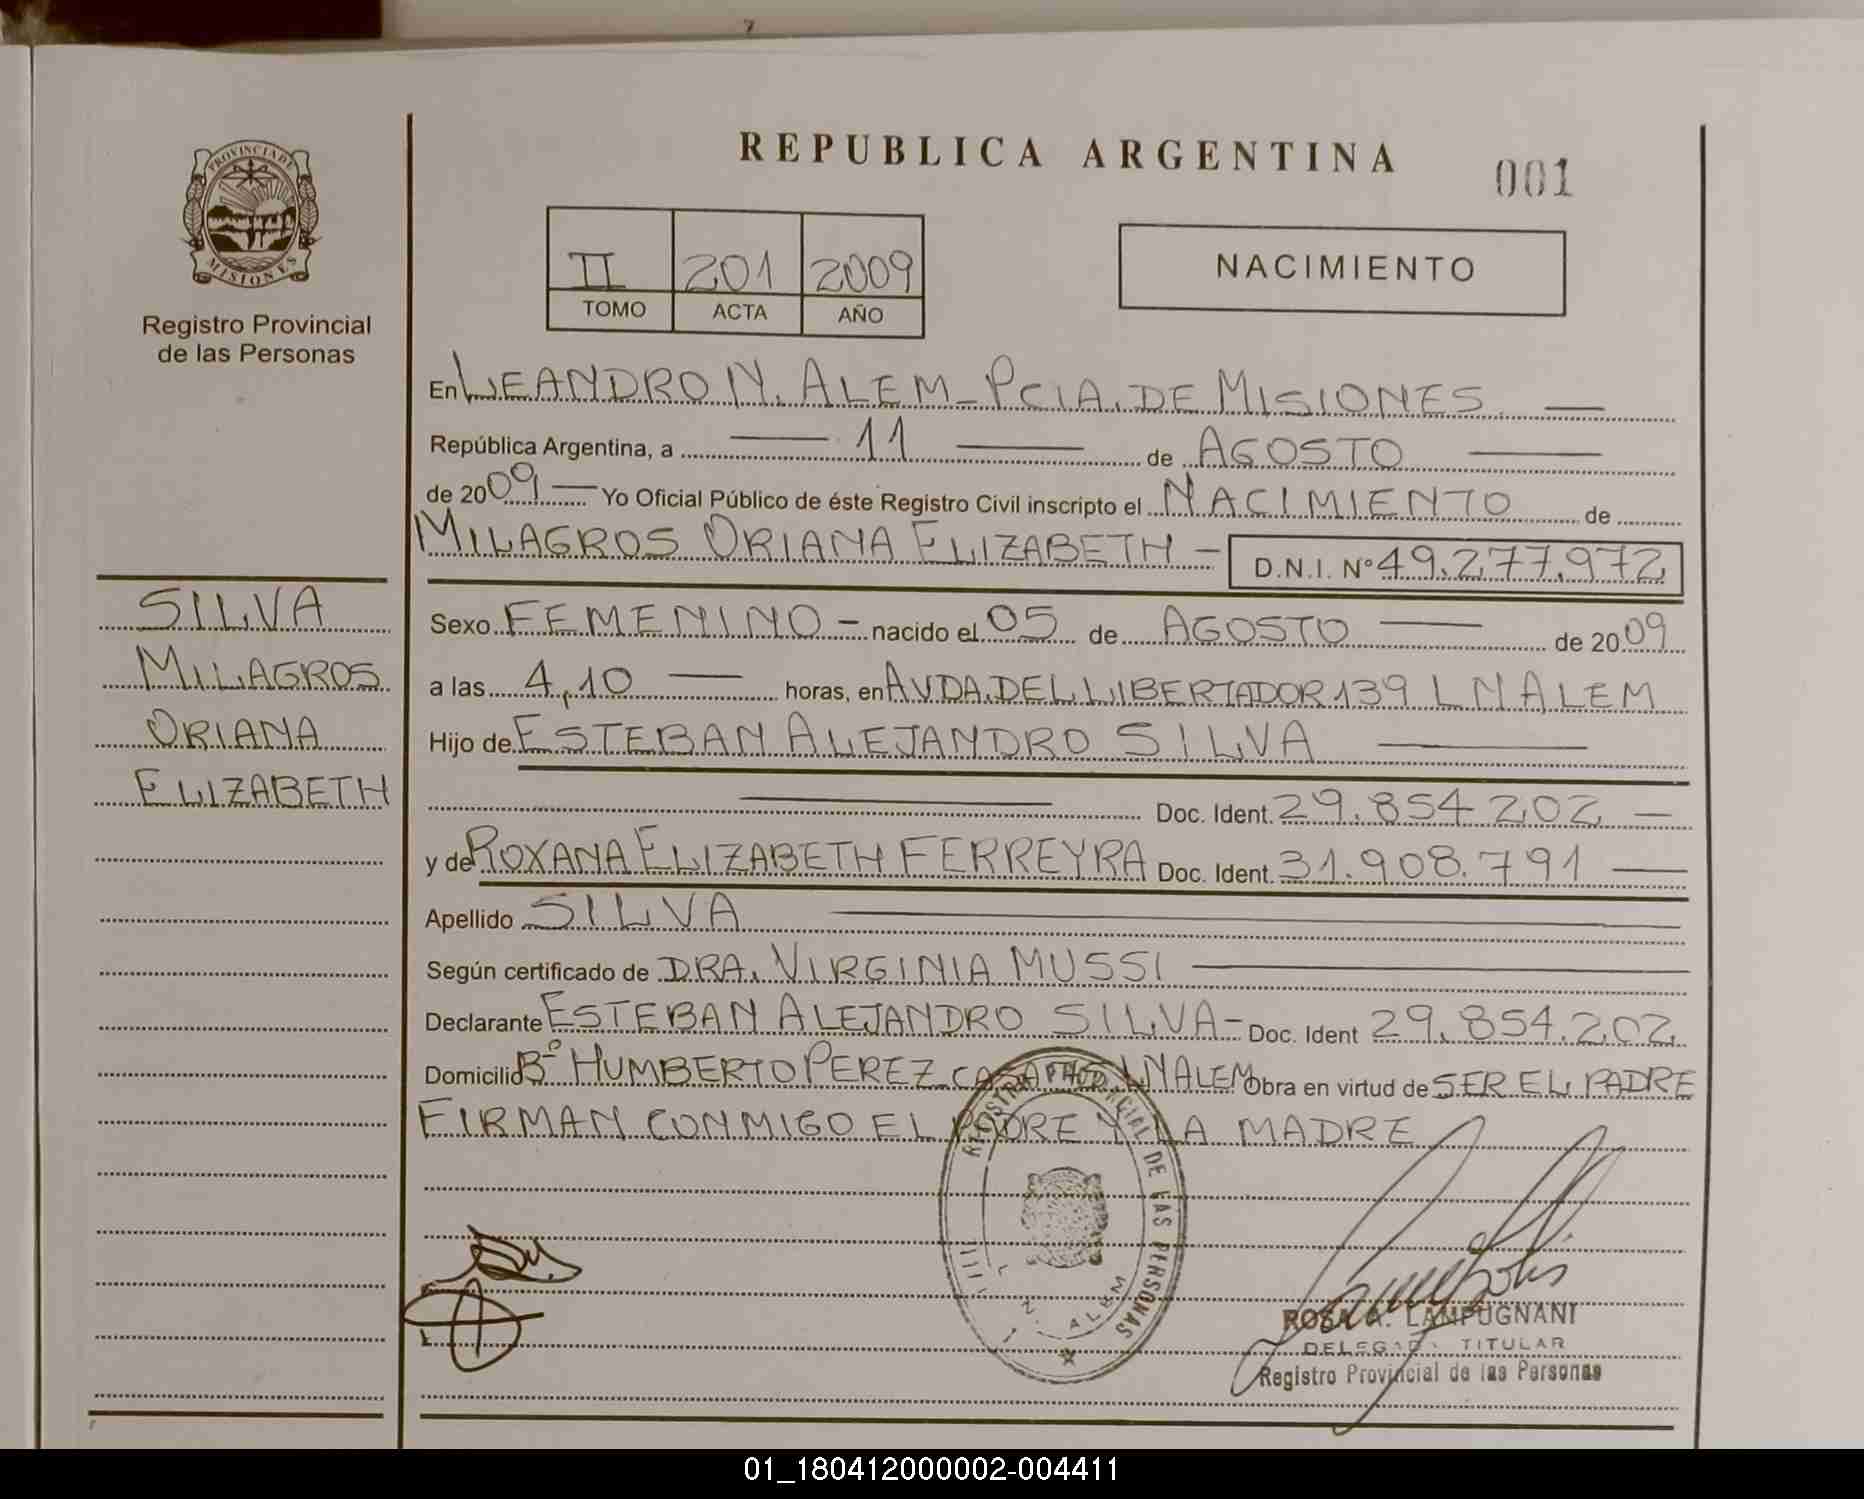 REPUBLICA ARGENTINA
001
PROVINCIA DE
MISIONES
Registro Provincial
de las Personas
II 201 2009
TOMO ACTA AÑO
NACIMIENTO
En LEANDRO N. ALEM - PCIA. DE MISIONES. —
República Argentina, a — 11 — de AGOSTO —
de 2009 — Yo Oficial Público de éste Registro Civil inscripto el NACIMIENTO de
MILAGROS ORIANA ELIZABETH - D.N.I. Nº 49.277.972
SILVA
MILAGROS
ORIANA
ELIZABETH
Sexo FEMENINO - nacido el 05 de AGOSTO — de 2009
a las 4,10 — horas, en AVDA. DEL LIBERTADOR 139 L N ALEM
Hijo de ESTEBAN ALEJANDRO SILVA —
— Doc. Ident. 29.854.202 —
y de ROXANA ELIZABETH FERREYRA Doc. Ident. 31.908.791 —
Apellido SILVA —
Según certificado de DRA. VIRGINIA MUSSI —
Declarante ESTEBAN ALEJANDRO SILVA - Doc. Ident 29.854.202
Domicilio Bº HUMBERTO PEREZ L N ALEM Obra en virtud de SER EL PADRE
FIRMAN CONMIGO EL PADRE Y LA MADRE
REGISTRO PROVINCIAL DE LAS PERSONAS
L. N. ALEM
ROSA A. LAMPUGNANI
DELEGADA TITULAR
Registro Provincial de las Personas
01_180412000002-004411